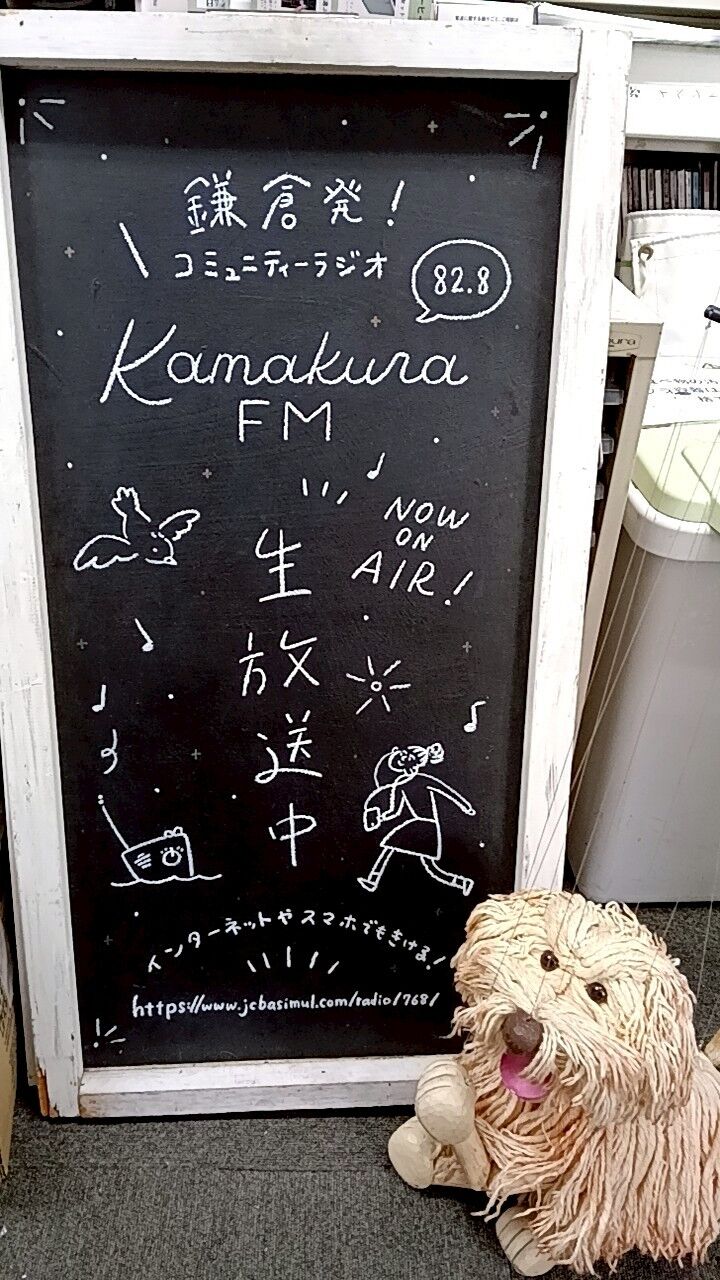 鎌倉発!
コミュニティーラジオ
82.8
Kamakura
FM
NOW
ON
AIR!
生放送中
インターネットやスマホでもきける!
https://www.jcbasimul.com/radio/768/